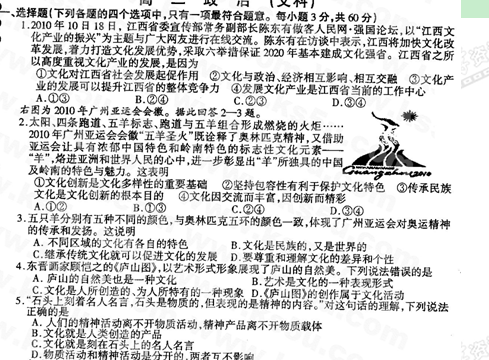 高二政治（文科）
一、选择题(下列各题的四个选项中,只有一项最符合题意。每小题3分,共60分)
1.2010年10月18日,江西省委宣传部常务副部长陈东有做客人民网·强国论坛,以“江西文
化产业的振兴”为主题与广大网友进行在线交流。陈东有在访谈中表示,江西将加快文化改
革发展,着力打造文化发展优势,采取六举措保证2020年基本建成文化强省。江西省之所
以高度重视文化产业的发展,是因为
①文化对江西省社会发展起促作用 ②文化与政治、经济相互影响、相互交融 ③文化产
业的发展可以提升江西省的整体竞争力 ④发展文化产业是江西省当前的工作中心
A.①③ B.②④ C.②③ D.③④
右图为2010年广州亚运会会徽。据此回答2—3题。
2.太阳,四条跑道、五羊标志、跑道与五羊组合形成燃烧的火炬……
2010年广州亚运会会徽“五羊圣火”既诠释了奥林匹克精神,又借助
亚运会让具有浓郁中国特色和岭南特色的标志性文化元素——
“羊”,烙进亚洲和世界人民的心中,进一步彰显出“羊”所独具的中国
及岭南的特色与魅力。这表明
Guangzhou2010
①文化创新是文化多样性的重要基础 ②坚持包容性有利于保护文化特色 ③传承民族
文化是文化创新的根本目的 ④文化因交流而丰富,因创新而精彩
A.①② B.①③ C.②④ D.③④
3.五只羊分别有五种不同的颜色,与奥林匹克五环的颜色一致,体现了广州亚运会对奥运精神
的传承和发扬。这说明
A.不同区域的文化有各自的特色 B.文化是民族的,又是世界的
C.继承传统文化就可以促进文化的发展 D.要尊重和理解文化的差异和个性
4.东晋画家顾恺之的《庐山图》,以艺术形式形象展现了庐山的自然美。下列说法错误的是
A.庐山的自然美也是一种文化 B.艺术是文化的一种表现形式
C.文化是人所创造的、为人所特有的一种现象 D.《庐山图》的创作属于文化活动
5.“石头上刻着名人名言,石头是物质的,但表现的是精神的内容。”对这句话的理解,下列说法
正确的是
A.人们的精神活动离不开物质活动,精神产品离不开物质载体
B.文化就是人类创造的产品
C.文化就是刻在石头上的名人名言
D.物质活动和精神活动是分开的,两者互不影响